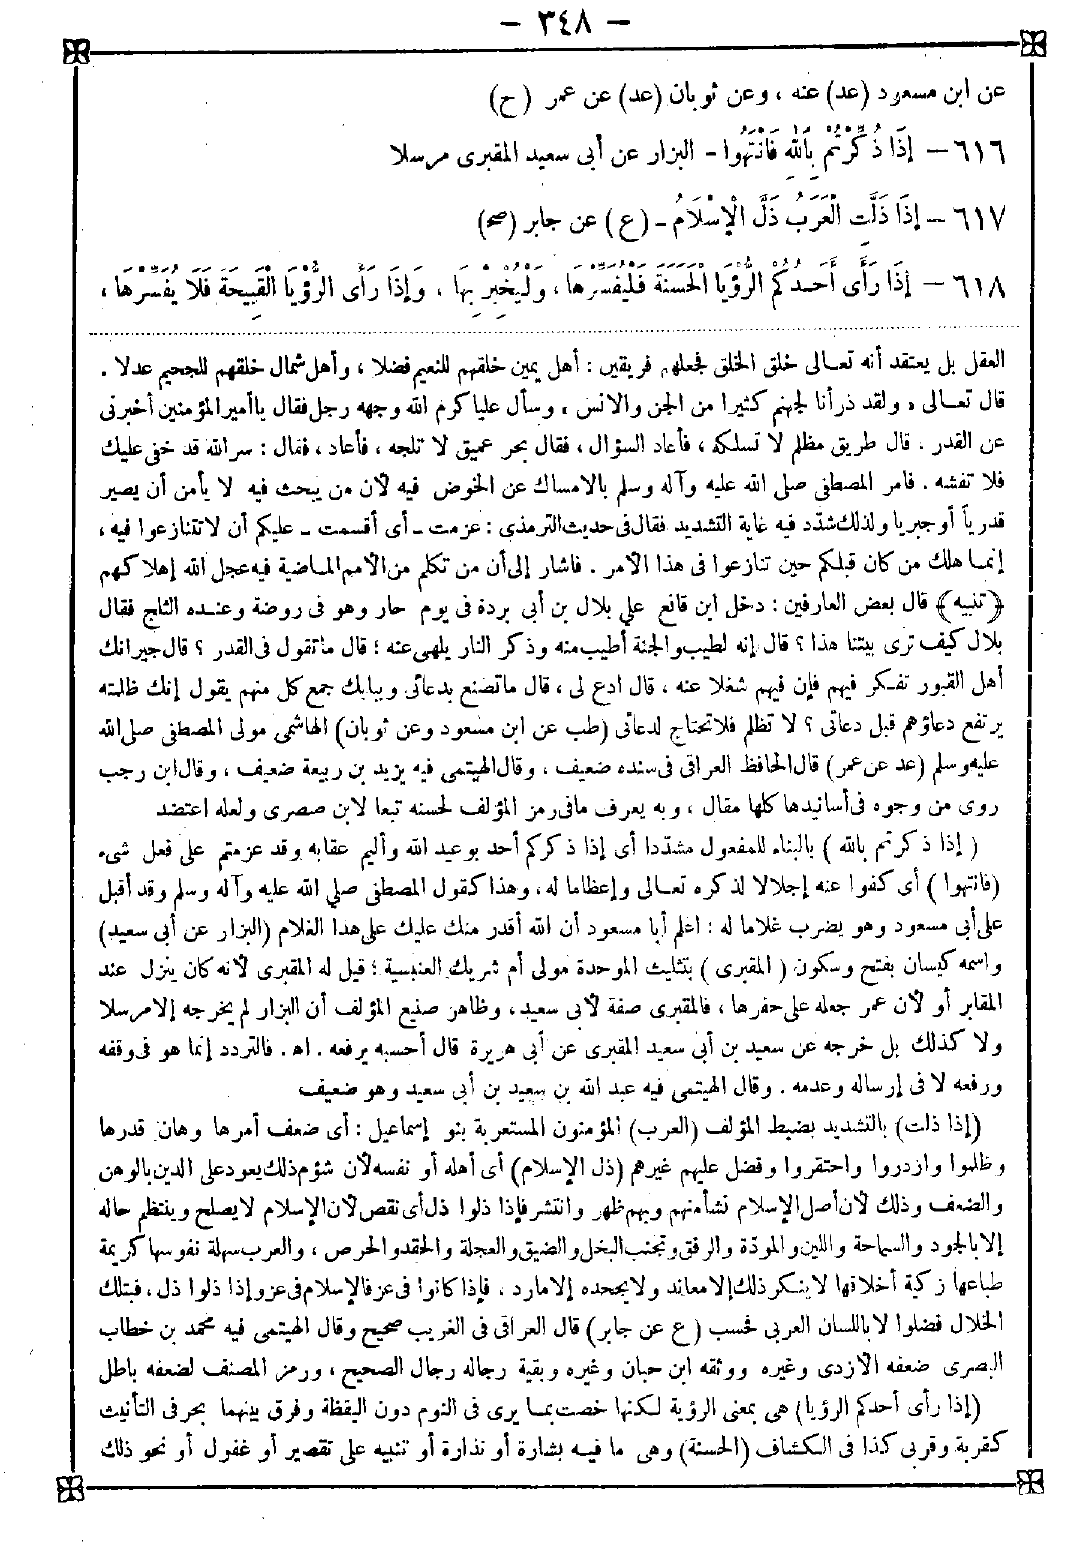 – ٣٤٨ –
عن ابن مسعود (عد) عنه ، وعن ثوبان (عد) عن عمر (ح)
٦١٦ – إِذَا ذُكِّرْتُمْ بِاللهِ فَانْتَهُوا - البزار عن أبى سعيد المقبرى مرسلا
٦١٧ – إِذَا ذَلَّتِ الْعَرَبُ ذَلَّ الْإِسْلَامُ - (ع) عن جابر (صح)
٦١٨ – إِذَا رَأَى أَحَدُكُمُ الرُّؤْيَا الْحَسَنَةَ فَلْيُفَسِّرْهَا ، وَلْيُخْبِرْ بِهَا ، وَإِذَا رَأَى الرُّؤْيَا الْقَبِيحَةَ فَلَا يُفَسِّرْهَا ،
العقل بل يعتقد أنه تعـالى خلق الخلق فجعلهم فريقين : أهل يمين خلقهم للنعيم فضلا ، وأهل شمال خلقهم للجحيم عدلا .
قال تعـالى ، ولقد ذرأنا لجهنم كثيرا من الجن والانس ، وسأل عليا كرم الله وجهه رجل فقال يا أمير المؤمنين أخبرنى
عن القدر . قال طريق مظلم لا تسلكه ، فأعاد السؤال ، فقال بحر عميق لا تلجه ، فأعاد ، فقال : سر الله قد خفى عليك
فلا تفشه . فامر المصطفى صلى الله عليه وآله وسلم بالامساك عن الخوض فيه لأن من يبحث فيه لا يأمن أن يصير
قدرياً أو جبريا ولذلك شدّد فيه غاية التشديد فقال فى حديث الترمذى : عزمت - أى أقسمت - عليكم أن لا تتنازعوا فيه ،
إنمـا هلك من كان قبلكم حين تنازعوا فى هذا الأمر . فاشار إلى أن من تكلم من الأمم المـاضية فيه عجل الله إهلاكهم
﴿تنبيه﴾ قال بعض العارفين : دخل ابن قانع على بلال بن أبى بردة فى يوم حار وهو فى روضة وعنـده الثلج فقال
بلال كيف ترى بيتنا هذا ؟ قال إنه لطيب والجنة أطيب منه وذكر النار يلهى عنه ؛ قال ما تقول فى القدر ؟ قال جيرانك
أهل القبور تفـكر فيهم فإن فيهم شغلا عنه ، قال ادع لى ، قال ما تصنع بدعائى وببابك جمع كل منهم يقول إنك ظلمته
يرتفع دعاؤهم قبل دعائى ؟ لا تظلم فلا تحتاج لدعائى (طب عن ابن مسعود وعن ثوبان) الهاشمى مولى المصطفى صلى الله
عليه وسلم (عد عن عمر) قال الحافظ العراقى فى سنده ضعيف ، وقال الهيتمى فيه يزيد بن ربيعة ضعيف ، وقال ابن رجب
روى من وجوه فى أسانيدها كلها مقال ، وبه يعرف ما فى رمز المؤلف لحسنه تبعا لابن صصرى ولعله اعتضد
( إذا ذكرتم بالله ) بالبناء للمفعول مشدّدا أى إذا ذكركم أحد بوعيد الله وأليم عقابه وقد عزمتم على فعل شىء
(فانتهوا) أى كفوا عنه إجلالا لذكره تعـالى وإعظاما له ، وهذا كقول المصطفى صلى الله عليه وآله وسلم وقد أقبل
على أبى مسعود وهو يضرب غلاما له : اعلم أبا مسعود أن الله أقدر منك عليك على هذا الغلام (البزار عن أبى سعيد)
واسمه كيسان بفتح وسكون (المقبرى) بتثليث الموحدة مولى أم شريك العنبسية ؛ قيل له المقبرى لأنه كان ينزل عند
المقابر أو لأن عمر جعله على حفرها ، فالمقبرى صفة لأبى سعيد ، وظاهر صنيع المؤلف أن البزار لم يخرجه إلا مرسلا
ولا كذلك بل خرجه عن سعيد بن أبى سعيد المقبرى عن أبى هريرة قال أحسبه يرفعه . اهـ . فالتردد إنما هو فى وقفه
ورفعه لا فى إرساله وعدمه . وقال الهيتمى فيه عبد الله بن سعيد بن أبى سعيد وهو ضعيف
(إذا ذلت) بالتشديد بضبط المؤلف (العرب) المؤمنون المستعربة بنو إسماعيل : أى ضعف أمرها وهان قدرها
وظلموا وازدروا واحتقروا وفضل عليهم غيرهم (ذل الإسلام) أى أهله أو نفسه لأن شؤم ذلك يعود على الدين بالوهن
والضعف وذلك لأن أصل الإسلام نشأ منهم وبهم ظهر وانتشر فإذا ذلوا ذل أى نقص لأن الإسلام لا يصلح وينتظم حاله
إلا بالجود والسماحة واللين والمودّة والرفق وتجنب البخل والضيق والعجلة والحقد والحرص ، والعرب سهلة نفوسها كريمة
طباعها زكية أخلاقها لا ينـكر ذلك إلا معاند ولا يجحده إلا مارد ، فإذا كانوا فى عز فالإسلام فى عز وإذا ذلوا ذل ، فبتلك
الخلال فضلوا لا باللسان العربى فحسب (ع عن جابر) قال العراقى فى الغريب صحيح وقال الهيتمى فيه محمد بن خطاب
البصرى ضعفه الأزدى وغيره ووثقه ابن حبان وغيره وبقية رجاله رجال الصحيح ، ورمز المصنف لضعفه باطل
(إذا رأى أحدكم الرؤيا) هى بمعنى الرؤية لـكنها خصت بمـا يرى فى النوم دون اليقظة وفرق بينهما بحرفى التأنيث
كقربة وقربى كذا فى الـكشاف (الحسنة) وهى ما فيـه بشارة أو نذارة أو تنبيه على تقصير أو غفول أو نحو ذلك